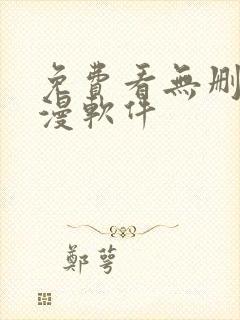 免費看無刪
漫軟件
鄭萼